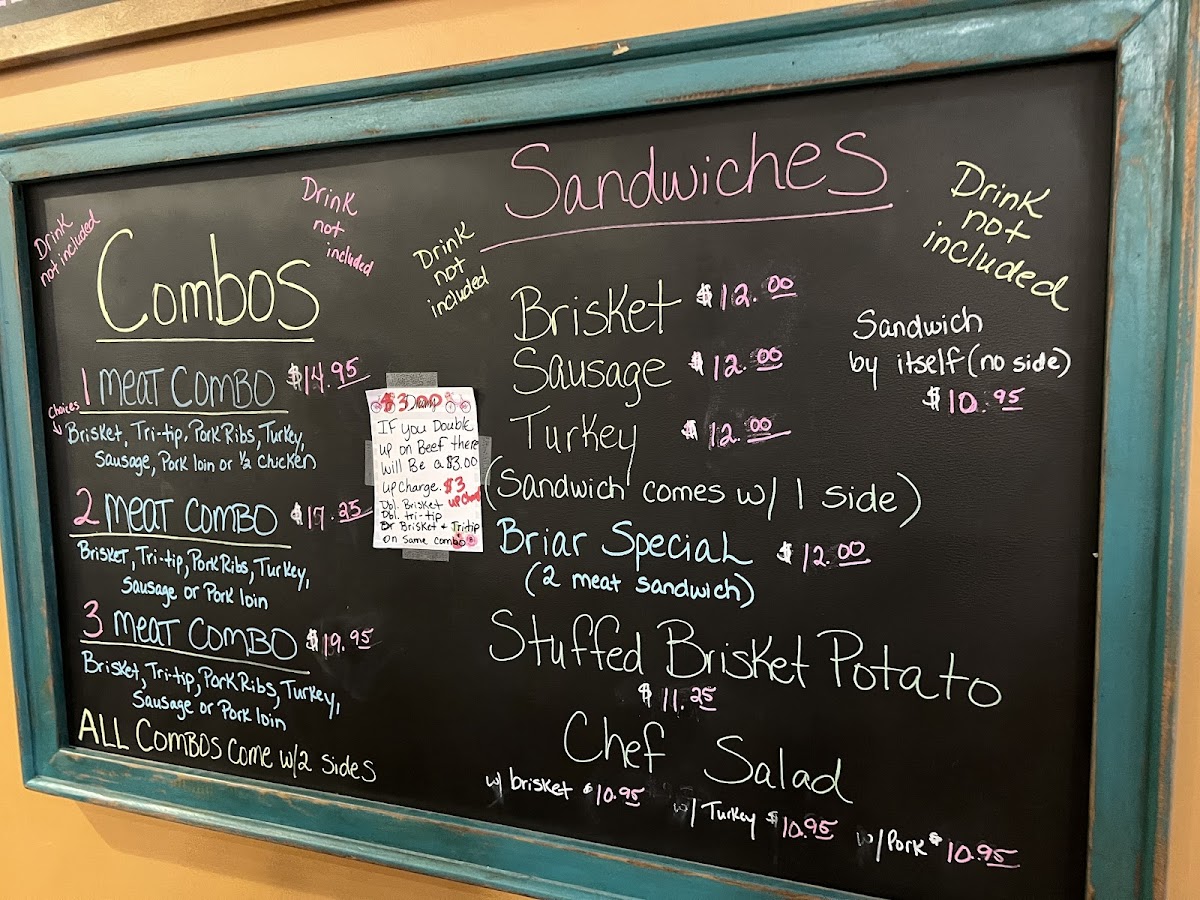 Drink
not included
Drink
not
included
Combos
1 Meat Combo $14.95
Choices
Brisket, Tri-tip, Pork Ribs, Turkey,
Sausage, Pork loin or 1/2 Chicken
2 Meat Combo $17.25
Brisket, Tri-tip, Pork Ribs, Turkey,
Sausage or Pork loin
3 Meat Combo $19.95
Brisket, Tri-tip, Pork Ribs, Turkey,
Sausage or Pork loin
ALL Combos Come w/2 sides
$3.00
If you Double
up on Beef there
will Be a $3.00
upcharge. $3
Dbl. Brisket upcharge
Dbl. tri-tip
Or Brisket + Tri-tip
on same combo
Drink
not
included
Sandwiches
Drink
not
included
Brisket $12.00
Sausage $12.00
Turkey $12.00
(Sandwich comes w/ 1 side)
Sandwich
by itself (no side)
$10.95
Briar Special $12.00
(2 meat sandwich)
Stuffed Brisket Potato
$11.25
Chef Salad
w/ brisket $10.95 w/ Turkey $10.95 w/Pork $10.95